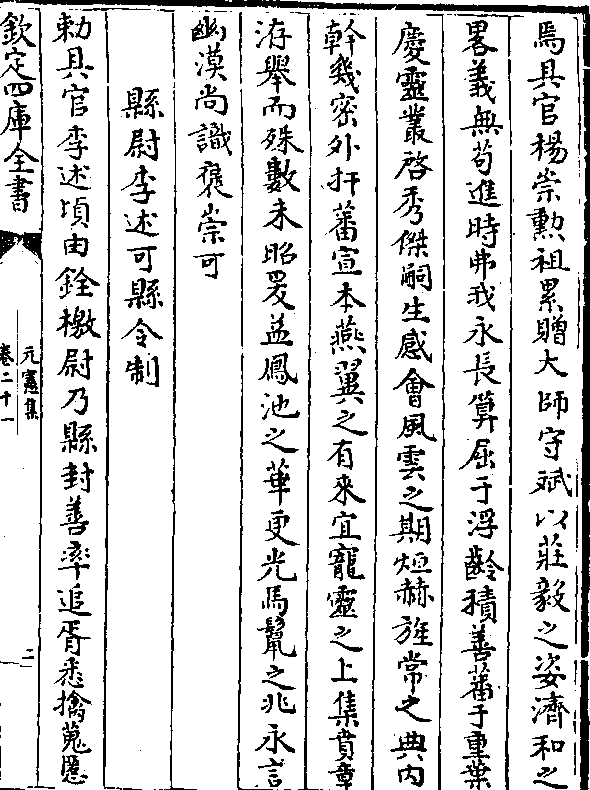 焉具官楊崇勲祖累贈大師守斌以莊毅之姿濟和之
畧義無苟進時弗我永長算屈于浮齡積善蕃于重葉
慶靈叢啓秀傑嗣生感會風雲之期烜赫旌常之典内
幹幾宻外扞蕃宣本燕翼之有来宜寵靈之上集賁章
洊舉而殊數未昭爰益鳳池之華更光馬鬛之兆永言
幽漠尚識褒崇可
縣尉李述可縣令制
勅具官李述頃由銓檄尉乃縣封善率追胥悉擒蒐慝
欽定四庫全書
元憲集
卷二十一
二